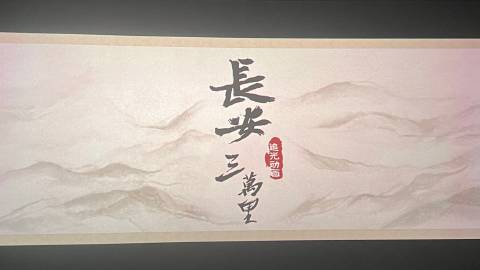 長安三萬里
追光动画